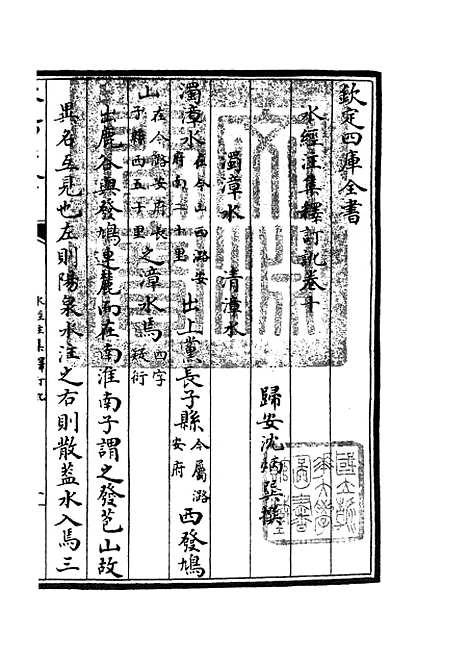 欽定四庫全書
水經注集釋訂訛卷十
歸安沈炳巽撰
濁漳水 清漳水
濁漳水在今山西潞安府南二十里出上黨長子縣今屬潞安府西發鳩
山在今潞安府長子縣西五十里之漳水焉四字疑衍
出鹿谷山與發鳩連麓而在南淮南子謂之發苞山故
異名互見也左則陽泉水注之右則散蓋水入焉三